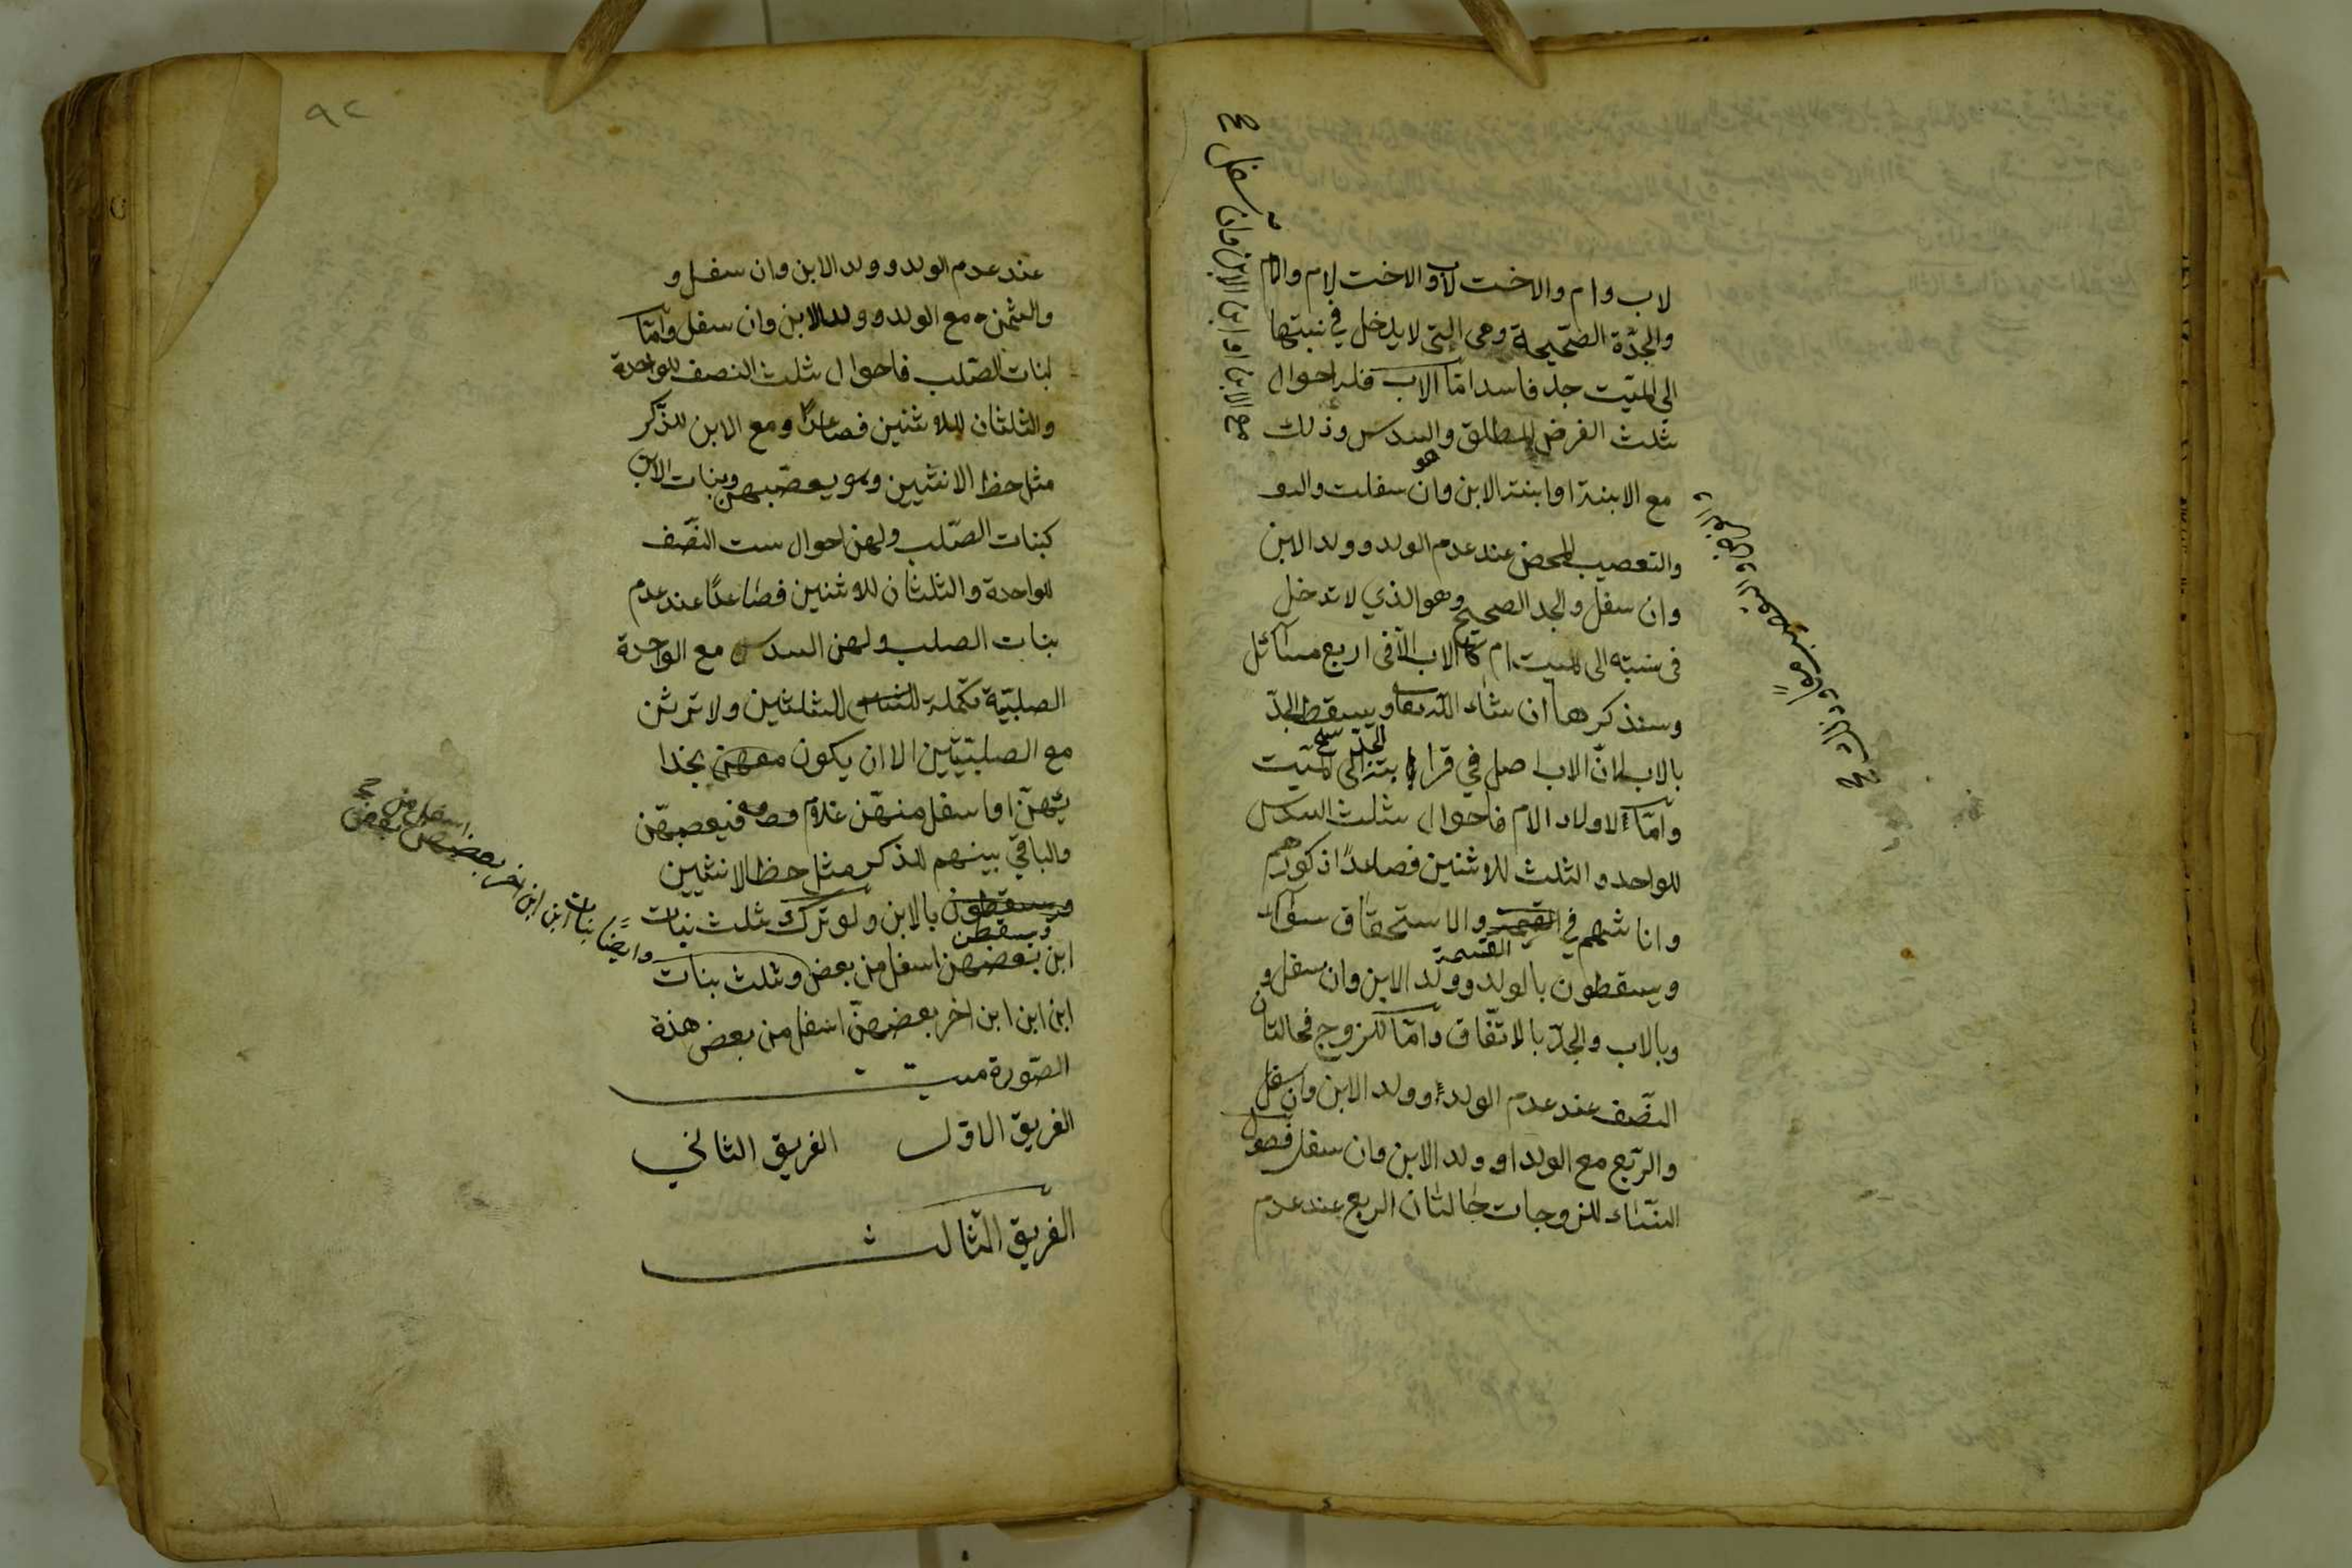 لاب وام والاخت لاب والاخت لام والام
والجدّة الصّحيحة وهى التى لا يدخل في نسبتها
الى الميّت جد فاسد امّا الاب فله احوال
ثلث الفرض المطلق وهو السدس وذلك
مع الابنة او ابنة الابن وان سفلت
والتعصيب المحض عند عدم الولد وولد الابن
وان سفل والجد الصحيح وهو الذي لا تدخل
فى نسبته الى الميت ام كالاب الّا فى اربع مسائل
وسنذكرها ان شاء الله تعالى ويسقط الجدّ
بالاب لانّ الاب اصل في قرابة الجدّ الى الميّت
وامّا لاولاد الام فاحوال ثلث السدس
للواحد والثلث للاثنين فصاعدًا ذكورهم
واناثهم في القسمة والاستحقاق سوآء
ويسقطون بالولد وولد الابن وان سفل و
وبالاب والجدّ بالاتّفاق وامّا للزوج فحالتان
النّصف عند عدم الولد وولد الابن وان سفل
والرّبع مع الولد او ولد الابن وان سفل فصول
النّساء للزوجات حالتان الربع عند عدم
مع الابن او ابن الابن وان سفل صح
٩٢
عند عدم الولد وولد الابن وان سفل و
والثمن مع الولد وولد الابن وان سفل وامّا
لبنات الصّلب فاحوال ثلث النصف للواحدة
والثلثان للاثنين فصاعدًا ومع الابن للذّكر
مثل حظ الانثيين وهو يعصّبهن وبنات الابن
كبنات الصّلب ولهن احوال ست النّصف
للواحدة والثلثان للاثنين فصاعدًا عند عدم
بنات الصلب ولهن السدس مع الواحدة
الصلبيّة تكملة للثلثين ولا ترثن
مع الصلبيّتين الا ان يكون بحذا
ئهنّ او اسفل منهنّ غلام فيعصبهنّ
والباقي بينهم للذكر مثل حظ الانثيين
ويسقطن بالابن ولو ترك ثلث بنات
ابن بعضهن اسفل من بعض وثلث بنات
ابن ابن ابن اخر بعضهنّ اسفل من بعض هذه
الصّورة ميت
الفريق الاوّل الفريق الثاني
الفريق الثالث
وايضًا بنات ابن ابن اخر بعضهن
اسفل من بعض صح